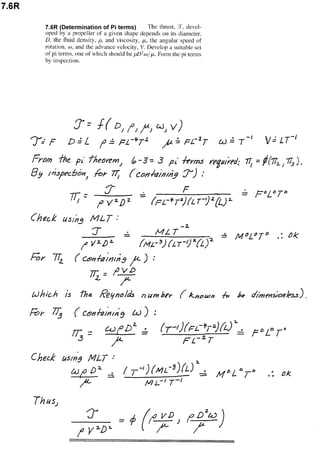 7.6R
7.6R (Determination of Pi terms) The thrust, 𝒯, devel-
oped by a propeller of a given shape depends on its diameter,
D, the fluid density, ρ, and viscosity, μ, the angular speed of
rotation, ω, and the advance velocity, V. Develop a suitable set
of pi terms, one of which should be ρD²ω/μ. Form the pi terms
by inspection.
𝒯 = f(D, ρ, μ, ω, V)
𝒯 ≐ F D ≐ L ρ ≐ FL⁻⁴T² μ ≐ FL⁻²T ω ≐ T⁻¹ V ≐ LT⁻¹
From the pi theorem, 6-3 = 3 pi terms required; π₁ = φ(π₂, π₃).
By inspection, for π₁ (containing 𝒯):
π₁ = 𝒯 / ρV²D² ≐ F / (FL⁻⁴T²)(LT⁻¹)²(L)² ≐ F⁰L⁰T⁰
Check using MLT:
𝒯 / ρV²D² ≐ MLT⁻² / (ML⁻³)(LT⁻¹)²(L)² ≐ M⁰L⁰T⁰ ∴ ok
For π₂ (containing μ):
π₂ = ρVD / μ
which is the Reynolds number (known to be dimensionless).
For π₃ (containing ω):
π₃ = ωρD² / μ ≐ (T⁻¹)(FL⁻⁴T²)(L)² / FL⁻²T ≐ F⁰L⁰T⁰
Check using MLT:
ωρD² / μ ≐ (T⁻¹)(ML⁻³)(L)² / ML⁻¹T⁻¹ ≐ M⁰L⁰T⁰ ∴ ok
Thus,
𝒯 / ρV²D² = φ(ρVD / μ, ρD²ω / μ)